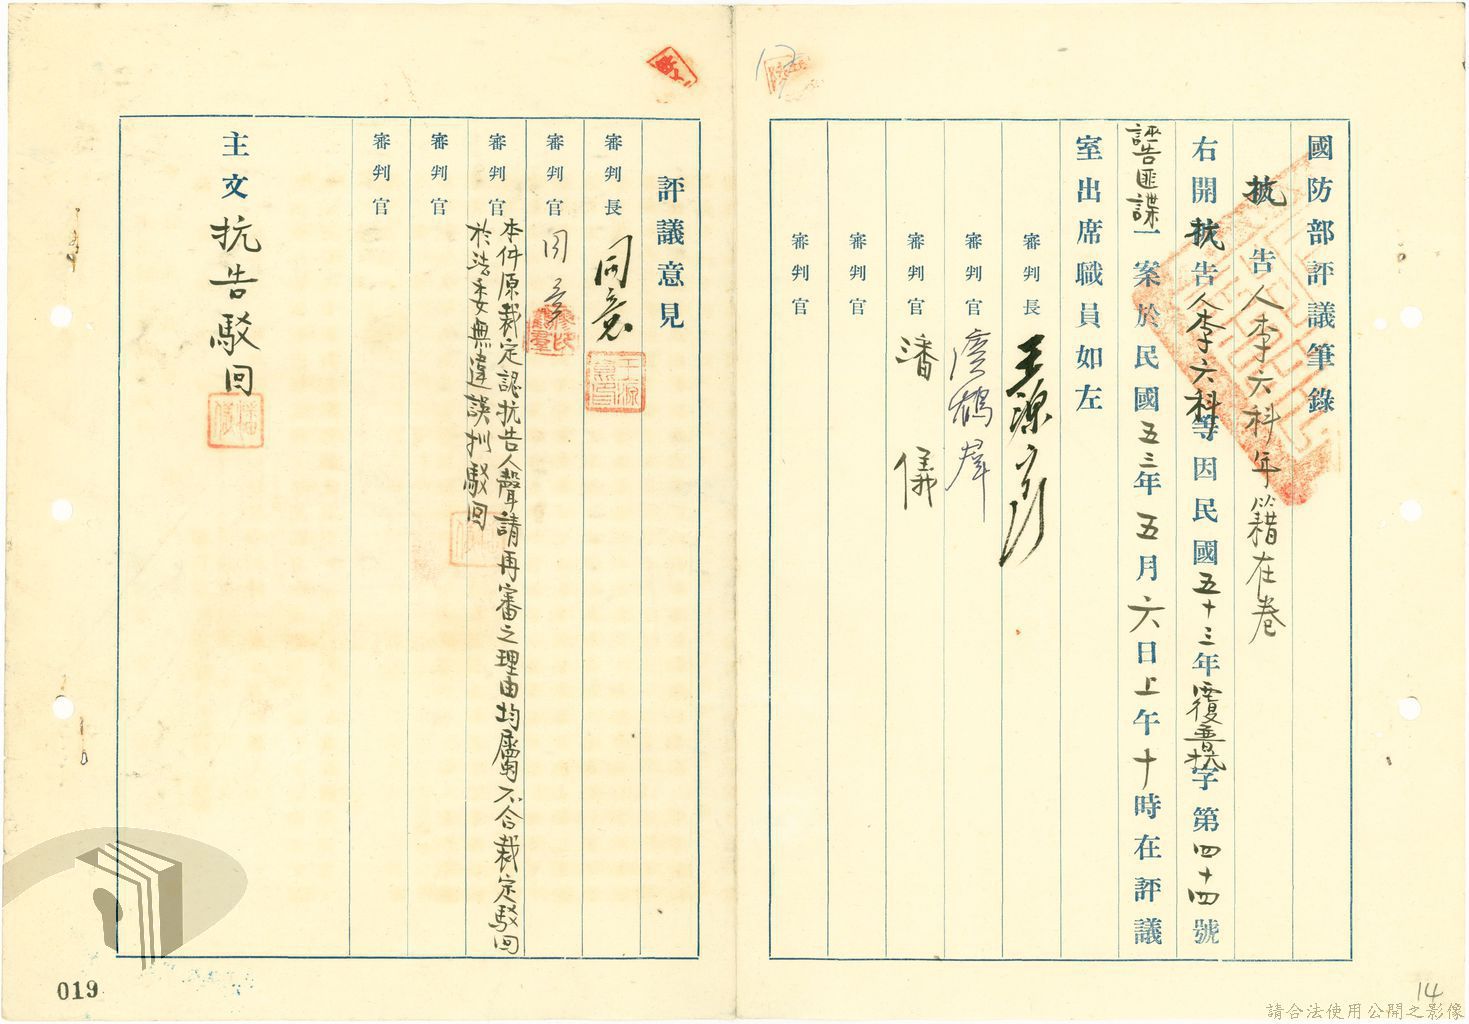 國防部評議筆錄
抗告人李六科年籍在卷
右開抗告人李六科等因民國五十三年覆普抗字第四十四號
誣告匪諜一案於民國五三年五月六日上午十時在評議
室出席職員如左
審判長 王源
審判官 鶴群
審判官 潘儀
審判官
審判官
評議意見
審判長 同意
審判官 同意
審判官 本件原裁定認抗告人聲請再審之理由均屬不合裁定駁回
於法委無違誤擬駁回
審判官
審判官
主文 抗告駁回
019
14
請合法使用公開之影像